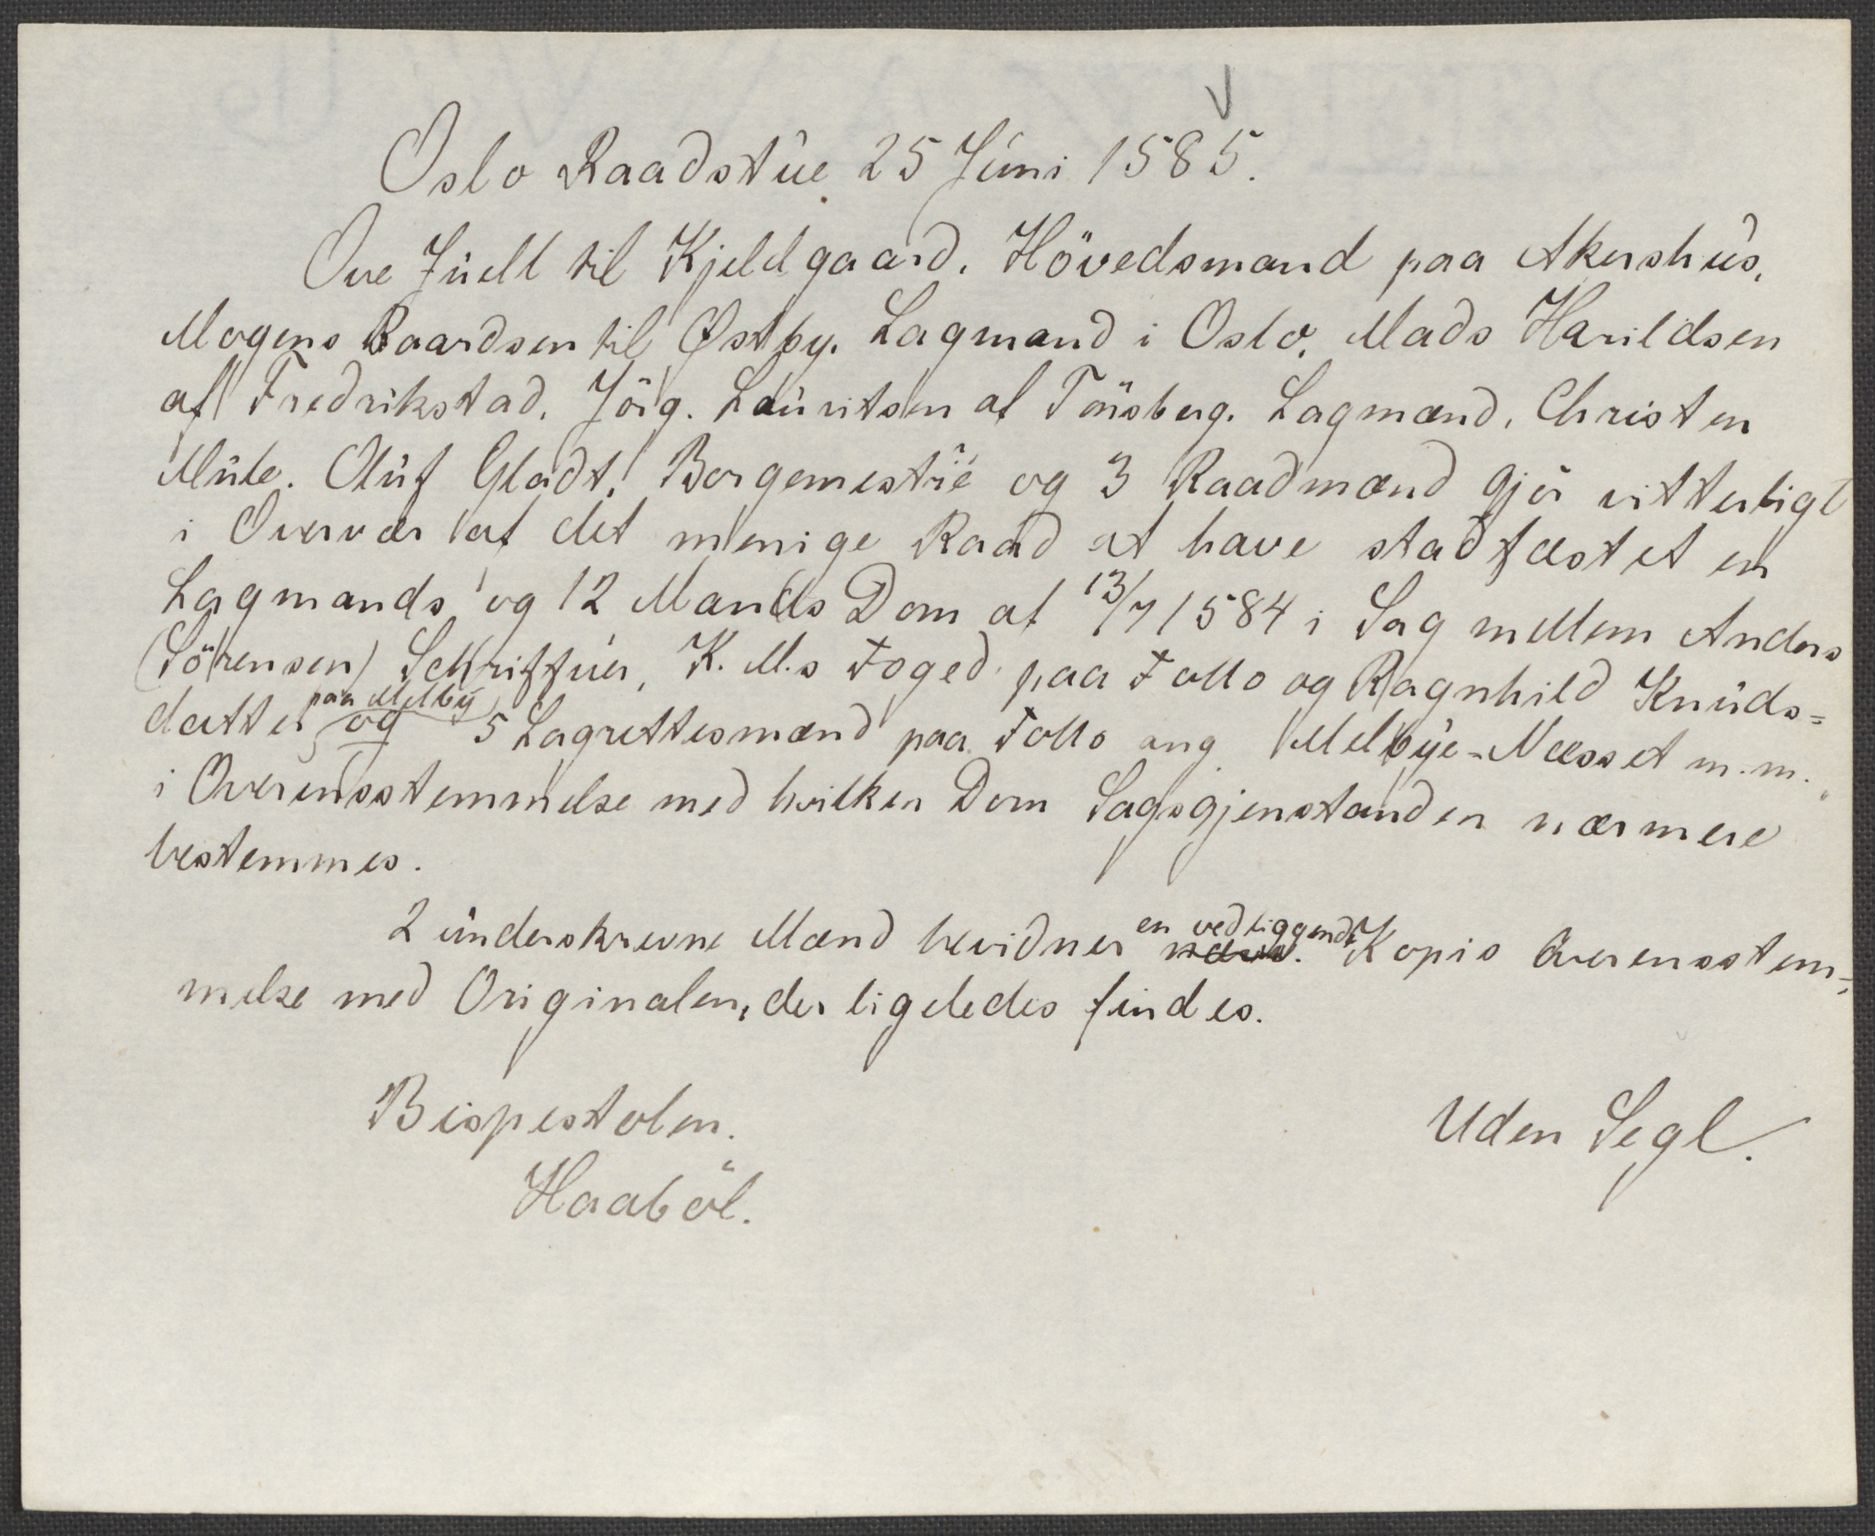 Oslo Raadstue 25 Juni 1585.
Ove Juell til Kjeldgaard, Hövedsmand paa Akershus,
Mogens Baardsen til Østby, Lagmand i Oslo, Mads Harildsen
af Fredrikstad, Jörg. Lauritsen af Tönsberg. Lagmænd, Christen
Mule. Oluf Gladt, Borgemestre og 3 Raadmænd gjör vitterligt
i Overvær af det menige Raad at have stadfæstet en
Lagmands og 12 Mands Dom af 13/7 1584 i Sag mellem Anders
(Sörensen) Schriffuer, K. M.s Foged paa Follo og Ragnhild Knuds=
datter paa Melby og 5 Lagrettesmænd paa Follo ang. Melbye-Næsset m.m.
i Overensstemmelse med hvilken Dom Sagsgjenstanden nærmere
bestemmes.
2 underskrevne Mænd bevidner en vedliggende Kopis Overensstem=
melse med Originalen, der ligeledes findes.
Bispestolen.
Uden Segl.
Haaböl.